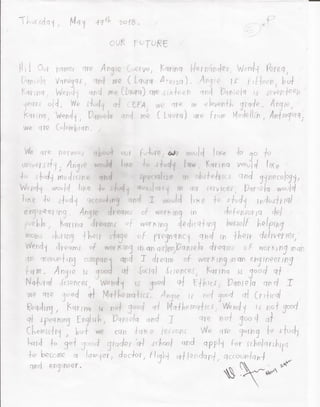 Thursday, May 17th 2018.
OUR FUTURE
Hi! Our names are Angie Cuervo, Karina Hernández, Wendy Perea,
Daniela Vanegas, and me (Laura). Angie is fifteen, but
Karina, Wendy and me (Laura) are sixteen and Daniela is seventeen
years old. We study at CEFA, we are in eleventh grade. Angie,
Karina, Wendy, Daniela and me (Laura) are from Medellín, Antioquia,
we are Colombian.
We are nervous about our future, we would like to go to
university, Angie would like to study law, Karina would like
to study medicine and specialize in obstetrics and gynecology,
Wendy would like to study auxiliary in air services, Daniela would
like to study accounting and I would like to study industrial
engineering. Angie dreams of working in defensoria del
pueblo, Karina dreams of working dedicating herself helping
moms during their stage of pregnancy and in their deliveries,
Wendy dreams of working in an airline, Daniela dreams of working in an
an accounting company and I dream of working in an engineering
firm. Angie is good at Social Sciences, Karina is good at
Natural Sciences, Wendy is good at Ethics, Daniela and I
we are good at Mathematics. Angie is not good at Critical
Reading, Karina is not good at Mathematics, Wendy is not good
at speaking English, Daniela and I are not good at
Chemistry, but we can take lessons. We are going to study
hard to get good grades at school and apply for scholarships
to become a lawyer, doctor, flight attendant, accountant
and engineer.